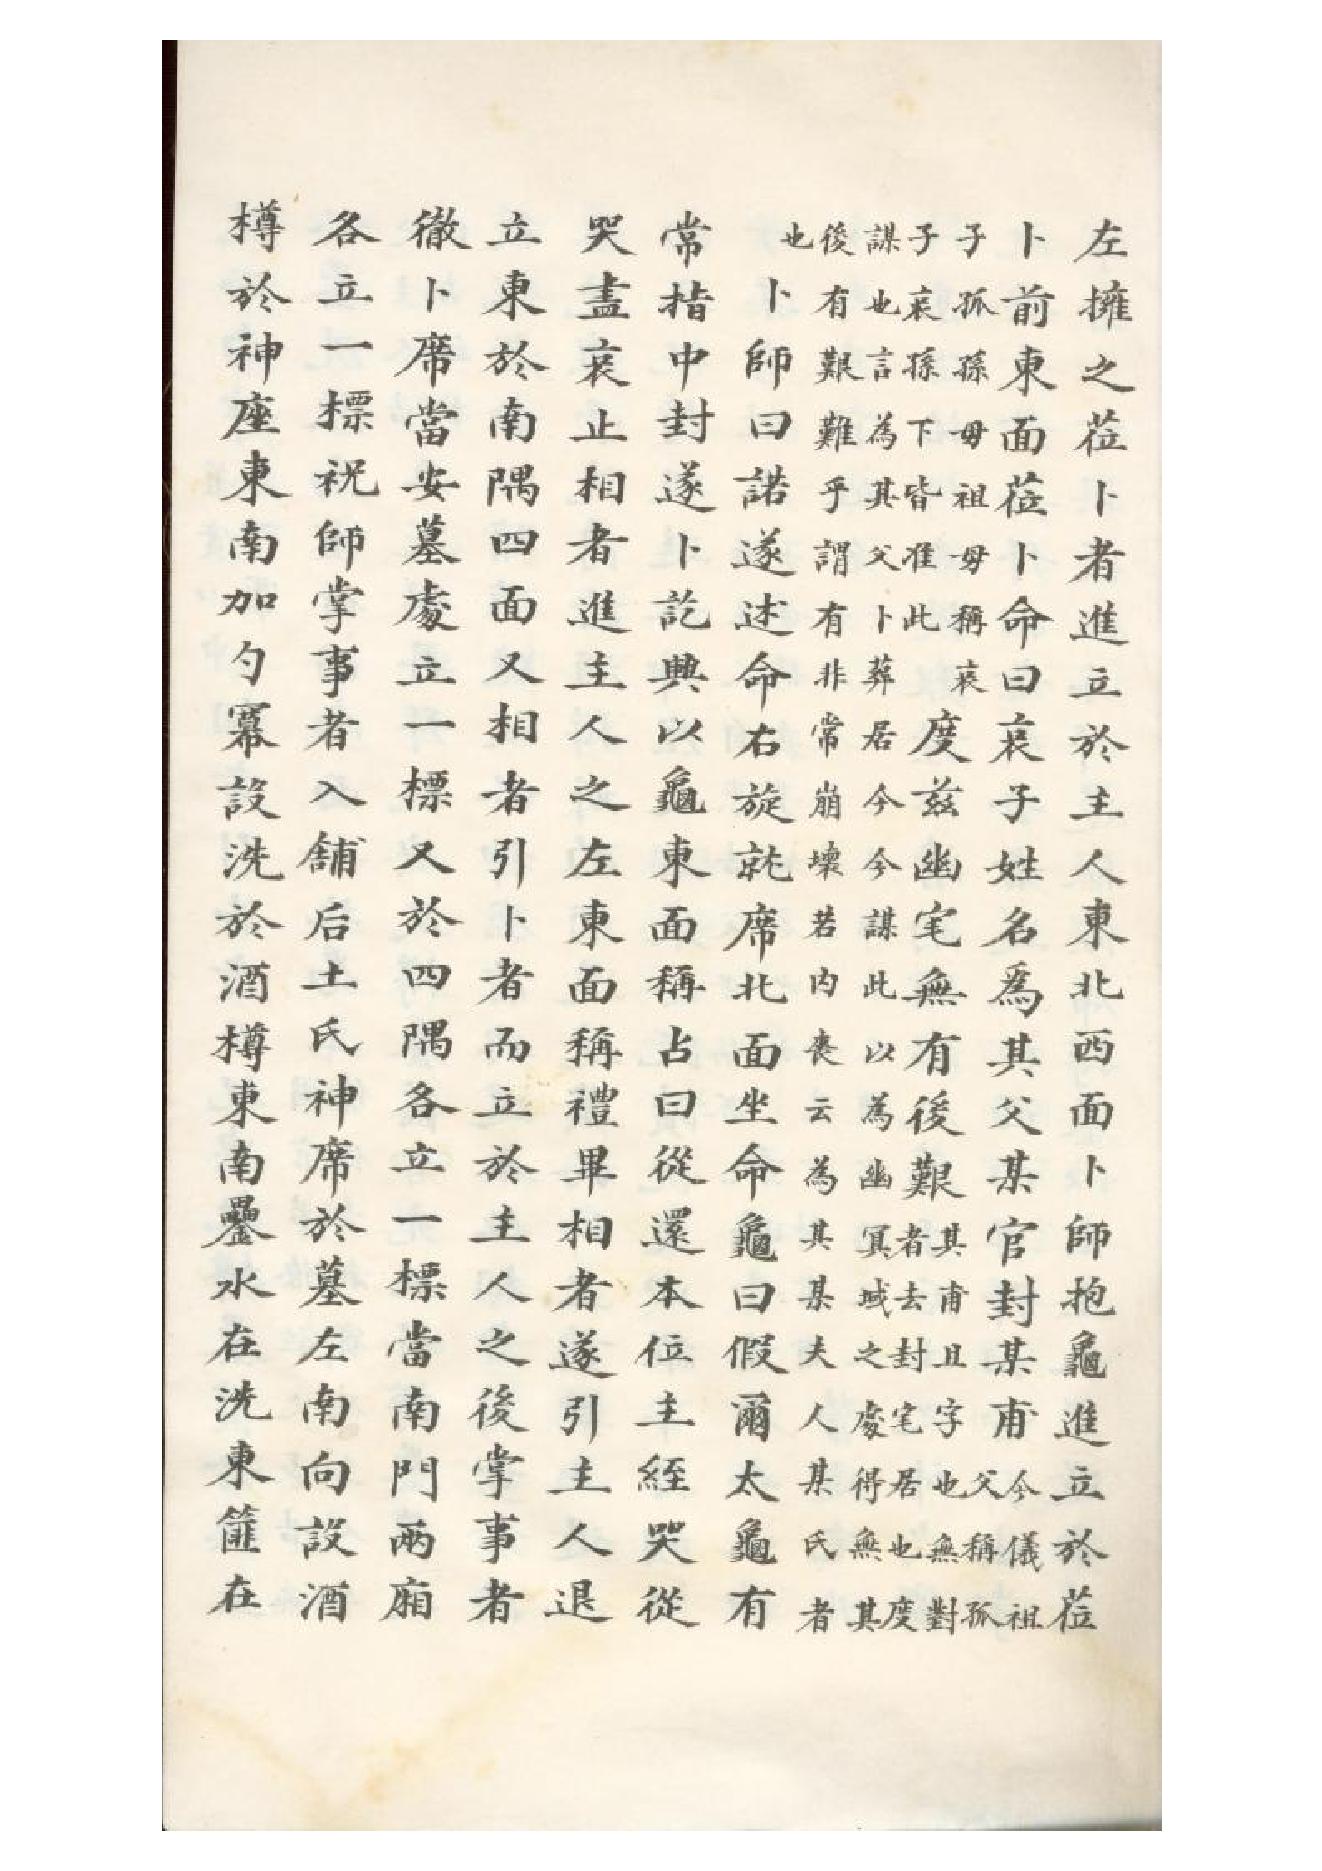 左擁之莅卜者進立於主人東北西面卜師抱龜進立於莅
卜前東面莅卜命曰哀子姓名爲其父某官封某甫今儀祖父稱孤
子孤孫母祖母稱哀子哀孫下皆准此度茲幽宅無有後艱其甫且字也無對者去封宅居也度
謀也言為其父卜葬居今今謀此以為幽冥域之處得無其
後有艱難乎謂有非常崩壞若内喪云為其某夫人某氏者
也卜師曰諾遂述命右旋就席北面坐命龜曰假爾太龜有
常指中封遂卜訖興以龜東面稱占曰從還本位主絰哭從
哭盡哀止相者進主人之左東面稱禮畢相者遂引主人退
立東於南隅四面又相者引卜者而立於主人之後掌事者
徹卜席當安墓處立一標又於四隅各立一標當南門兩廂
各立一標祝師掌事者入舖后土氏神席於墓左南向設酒
樽於神座東南加勺冪設洗於酒樽東南罍水在洗東篚在